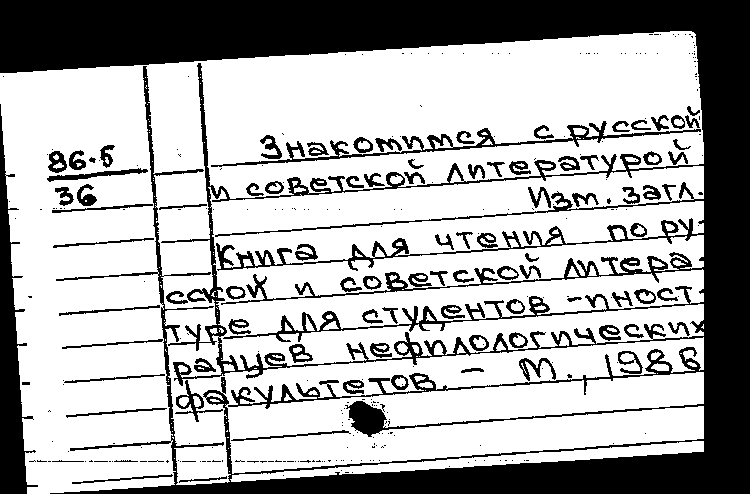 86.5
36
Знакомимся с русской
и советской литературой
Изм. загл.
Книга для чтения по ру-
сской и советской литера-
туре для студентов -иност-
ранцев нефилологических
факультетов. - М., 1986